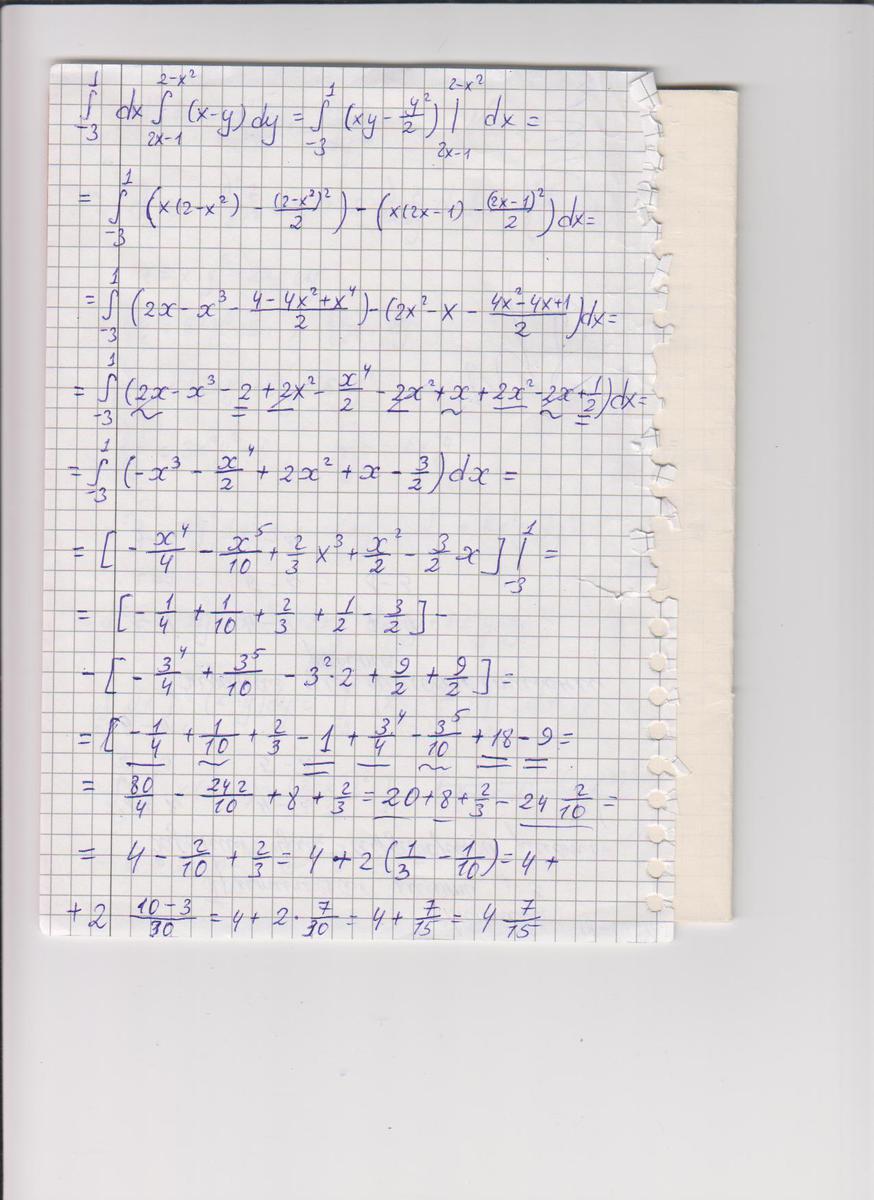 ∫₋₃¹ dx ∫_{2x-1}^{2-x²} (x-y) dy = ∫₋₃¹ (xy - y²/2) |_{2x-1}^{2-x²} dx =
= ∫₋₃¹ (x(2-x²) - (2-x²)²/2) - (x(2x-1) - (2x-1)²/2) dx =
= ∫₋₃¹ (2x - x³ - (4-4x²+x⁴)/2) - (2x² - x - (4x²-4x+1)/2) dx =
= ∫₋₃¹ (2x - x³ - 2 + 2x² - x⁴/2 - 2x² + x + 2x² - 2x + 1/2) dx =
= ∫₋₃¹ (-x³ - x⁴/2 + 2x² + x - 3/2) dx =
= [-x⁴/4 - x⁵/10 + 2/3 x³ + x²/2 - 3/2 x] |₋₃¹ =
= [-1/4 + 1/10 + 2/3 + 1/2 - 3/2] -
- [-3⁴/4 + 3⁵/10 - 3²·2 + 9/2 + 9/2] =
= [-1/4 + 1/10 + 2/3 - 1 + 3⁴/4 - 3⁵/10 + 18 - 9 =
= 80/4 - 242/10 + 8 + 2/3 = 20 + 8 + 2/3 - 24 2/10 =
= 4 - 2/10 + 2/3 = 4 + 2 (1/3 - 1/10) = 4 +
+ 2 (10-3)/30 = 4 + 2 · 7/30 = 4 + 7/15 = 4 7/15